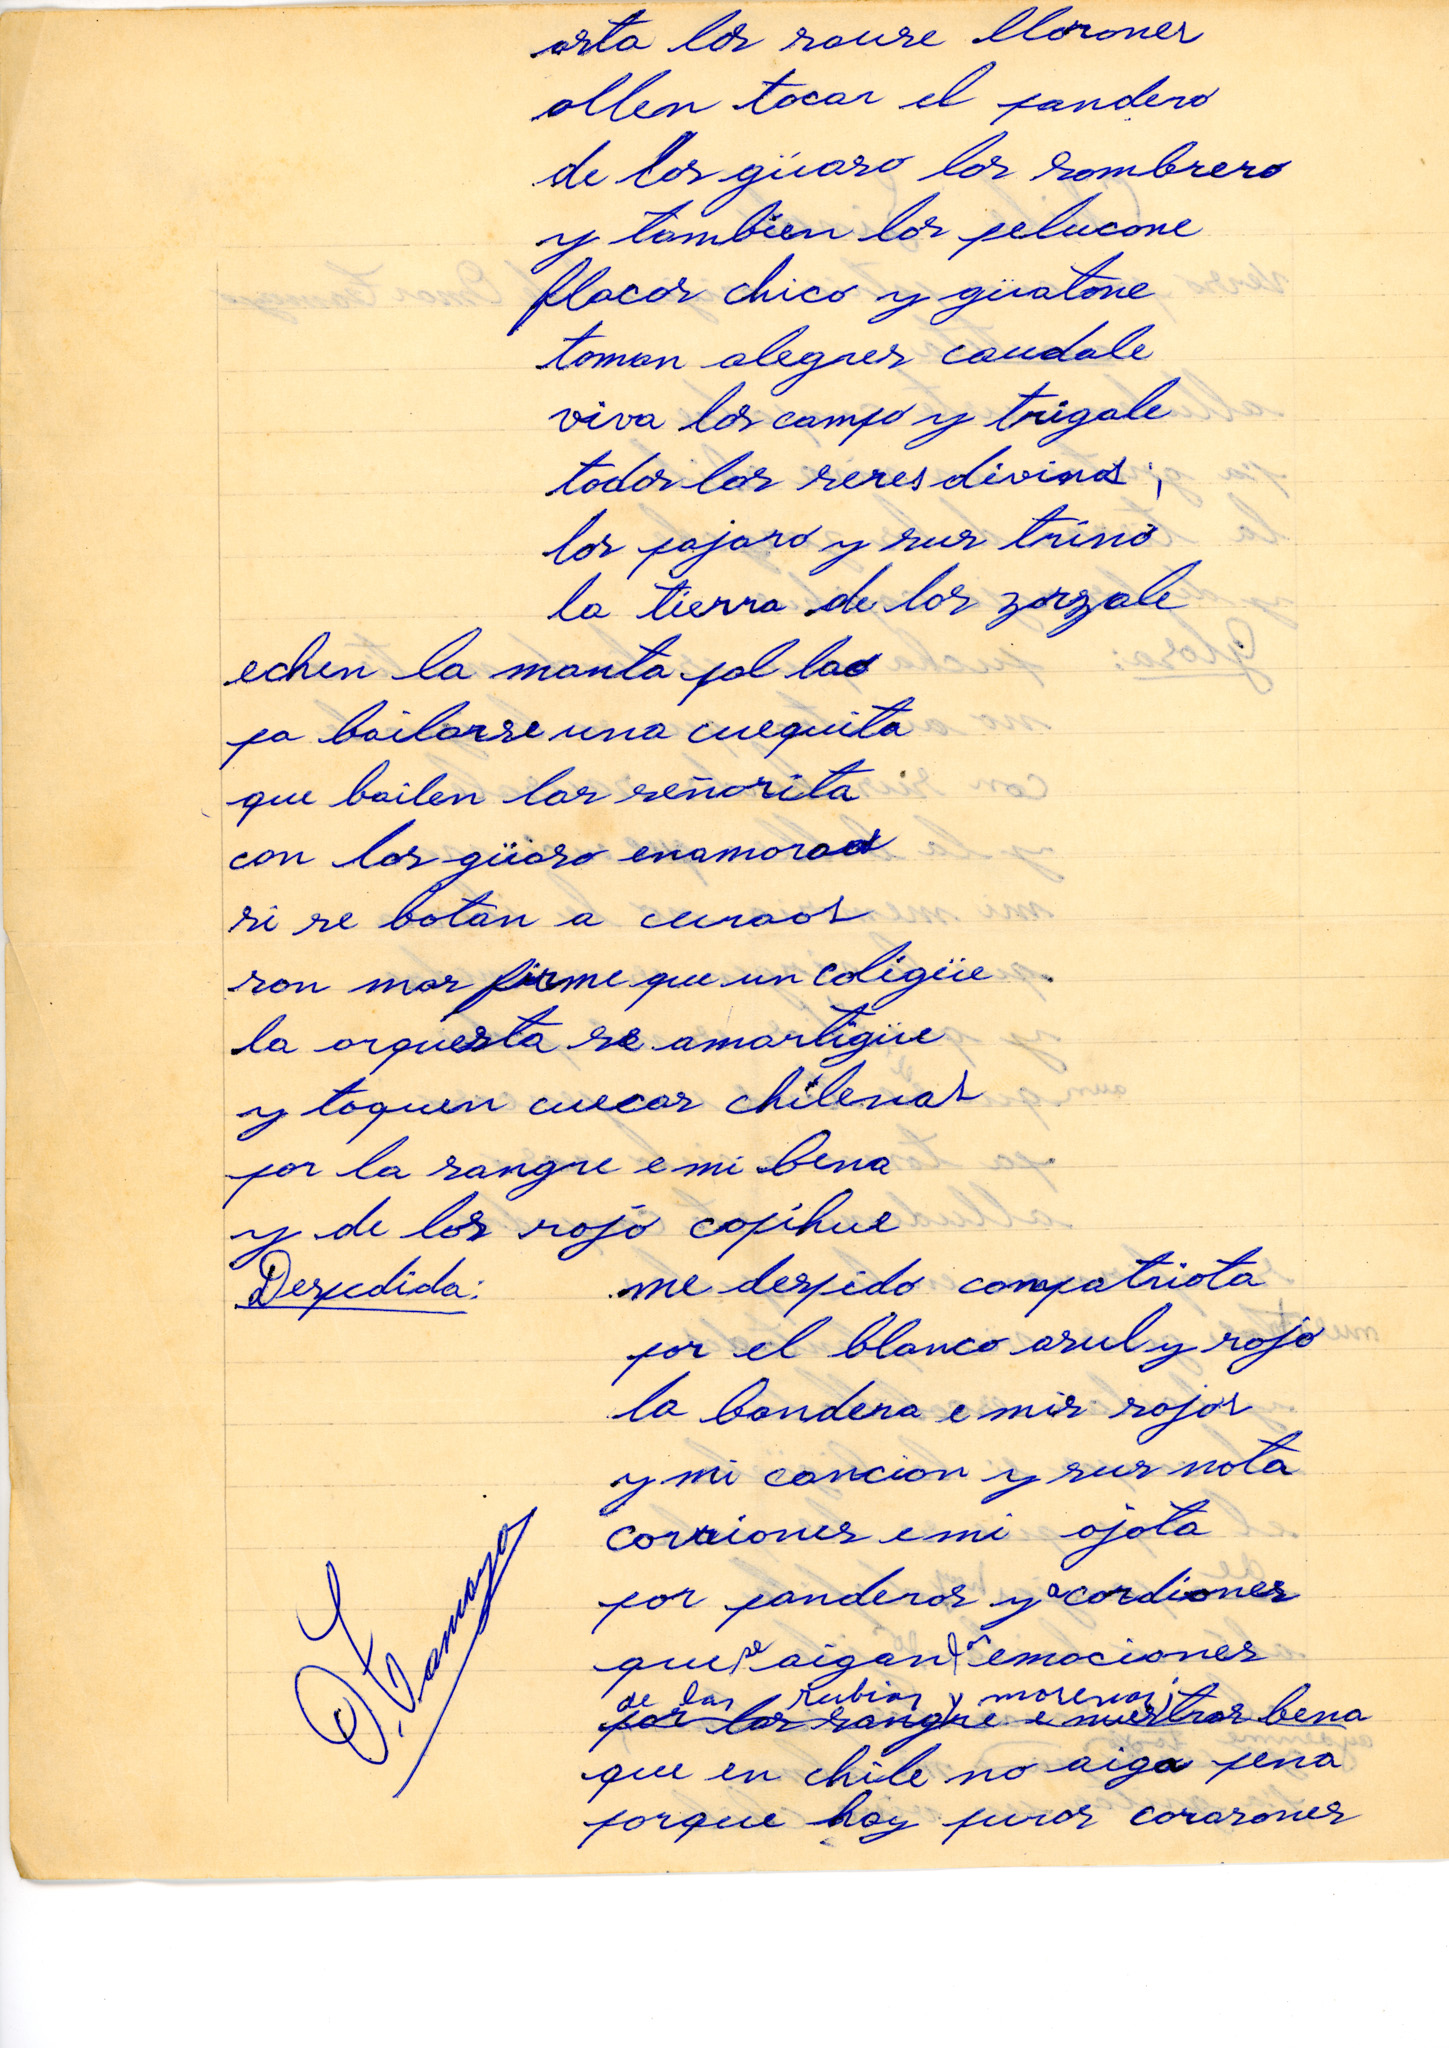 asta los sause llorones
ollen tocar el pandero
de los güaso los sombrero
y tambien los pelucone
flacos chico y güatone
toman alegres caudale
viva los campo y trigale
todos los seres divinos,
los pajaro y sus trino
la tierra de los zorzale
echen la manta pal lao
pa bailarse una cuequita
que bailen las señorita
con los güaso enamoraos
si se botan a curaos
son mas firme que un coligüe
la orquesta se amartigüe
y toquen cuecas chilenas
por la sangre e mi bena
y de los rojo copihue
Despedida: me despido compatriota
por el blanco asul y rojo
la bandera e mis rojos
y mi cancion y sus nota
corriones e mi ojota
por panderos y acordiones
que se aigan emociones
de las rubias y morenas
por las sangre e nuestras bena
que en chile no aiga pena
porque hay puros corasones
O. Tamayo